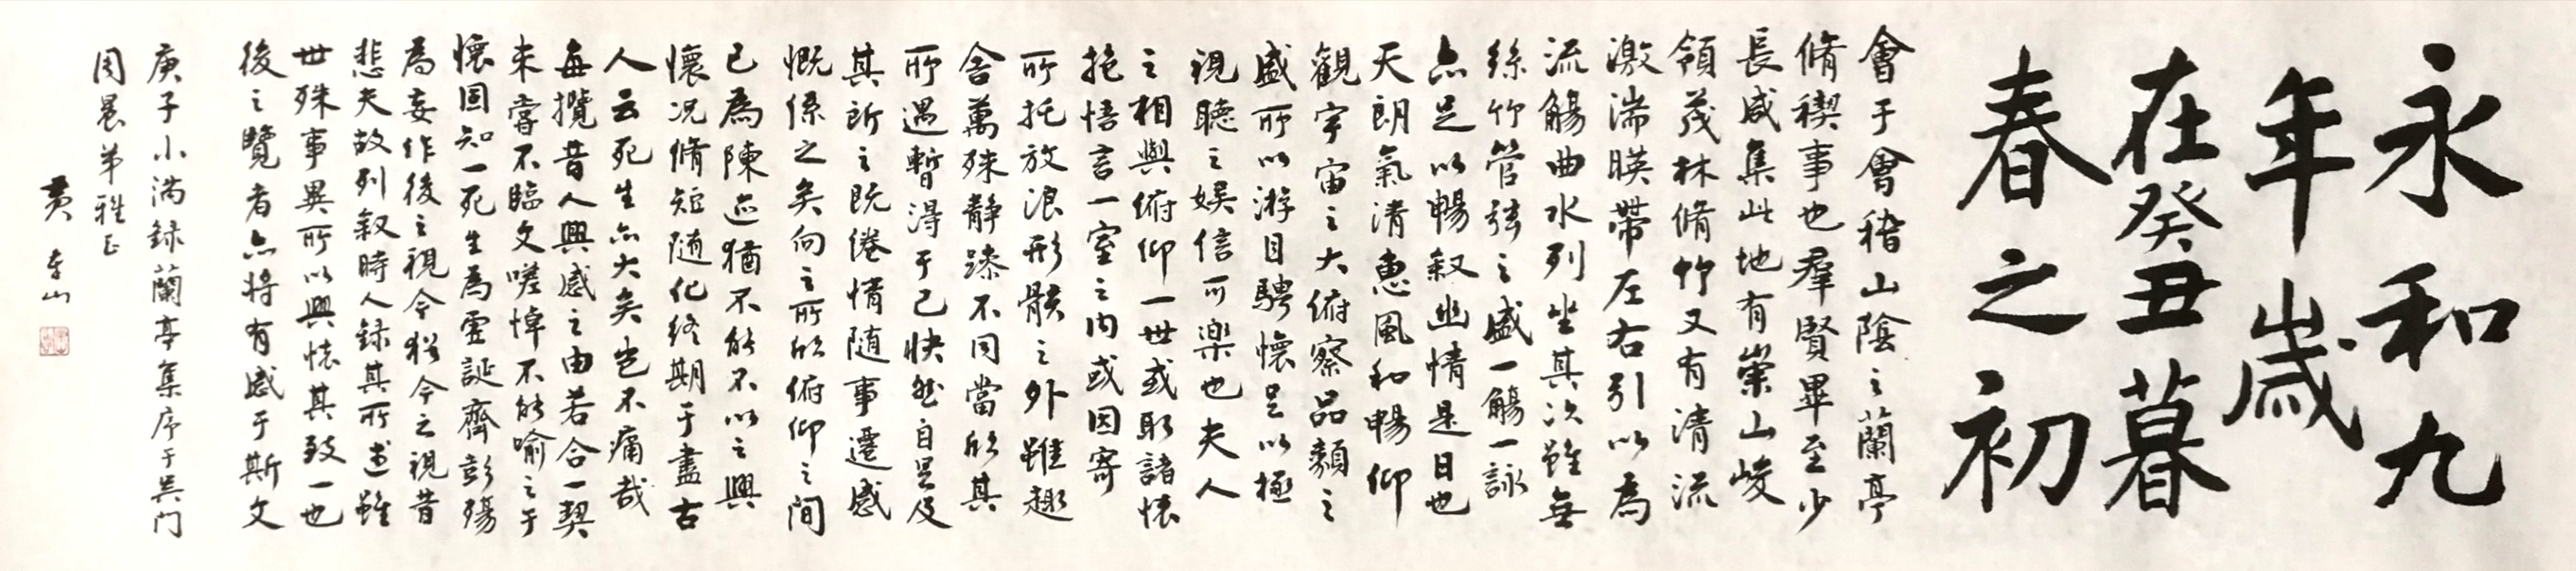 永和九
年歲
在癸丑暮
春之初
會于會稽山陰之蘭亭
脩稧事也羣賢畢至少
長咸集此地有崇山峻
領茂林脩竹又有清流
激湍暎帶左右引以為
流觴曲水列坐其次雖無
絲竹管弦之盛一觴一詠
亦足以暢叙幽情是日也
天朗氣清惠風和暢仰
觀宇宙之大俯察品類之
盛所以游目騁懷足以極
視聽之娱信可樂也夫人
之相與俯仰一世或取諸懷
抱悟言一室之内或因寄
所托放浪形骸之外雖趣
舍萬殊静躁不同當欣其
所遇暫得于己快然自足及
其所之既倦情随事遷感
慨係之矣向之所欣俯仰之間
已為陳迹猶不能不以之興
懷况脩短随化終期于盡古
人云死生亦大矣豈不痛哉
每攬昔人興感之由若合一契
未嘗不臨文嗟悼不能喻之于
懷固知一死生為虚誕齊彭殤
為妄作後之視今猶今之視昔
悲夫故列叙時人録其所述雖
世殊事異所以興懷其致一也
後之覽者亦将有感于斯文
庚子小满録蘭亭集序于吴门
周晨弟雅正
山